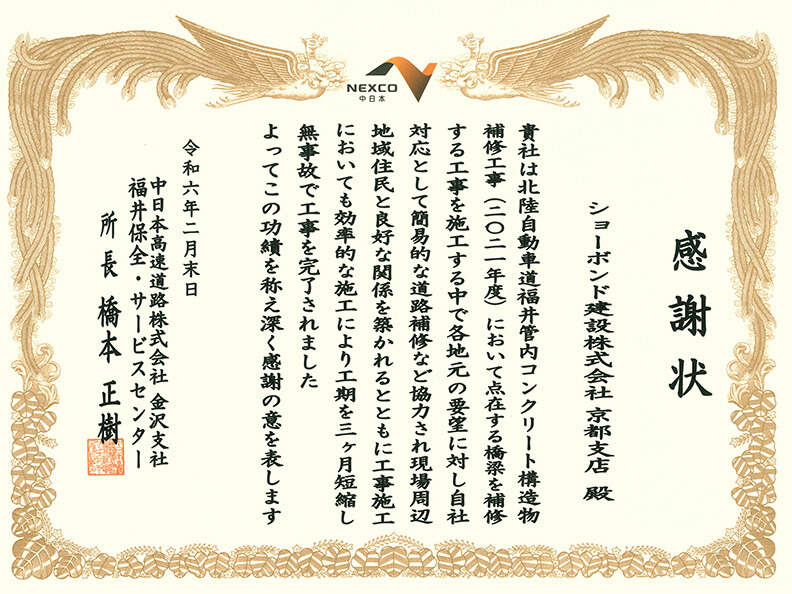 NEXCO
中日本
感謝状
ショーボンド建設株式会社 京都支店 殿
貴社は北陸自動車道福井管内コンクリート構造物
補修工事(二〇二一年度)において点在する橋梁を補修
する工事を施工する中で各地元の要望に対し自社
対応として簡易的な道路補修など協力され現場周辺
地域住民と良好な関係を築かれるとともに工事施工
においても効率的な施工により工期を三ヶ月短縮し
無事故で工事を完了されました
よってこの功績を称え深く感謝の意を表します
令和六年二月末日
中日本高速道路株式会社 金沢支社
福井保全・サービスセンター
所長 橋本正樹